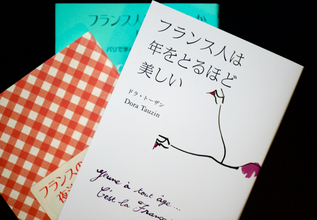 フランス人は
年をとるほど
美しい
ドラ・トーザン
Dora Tauzin
Jeune à tout âge...
C'est la France
フランス
パリで学
フランスの